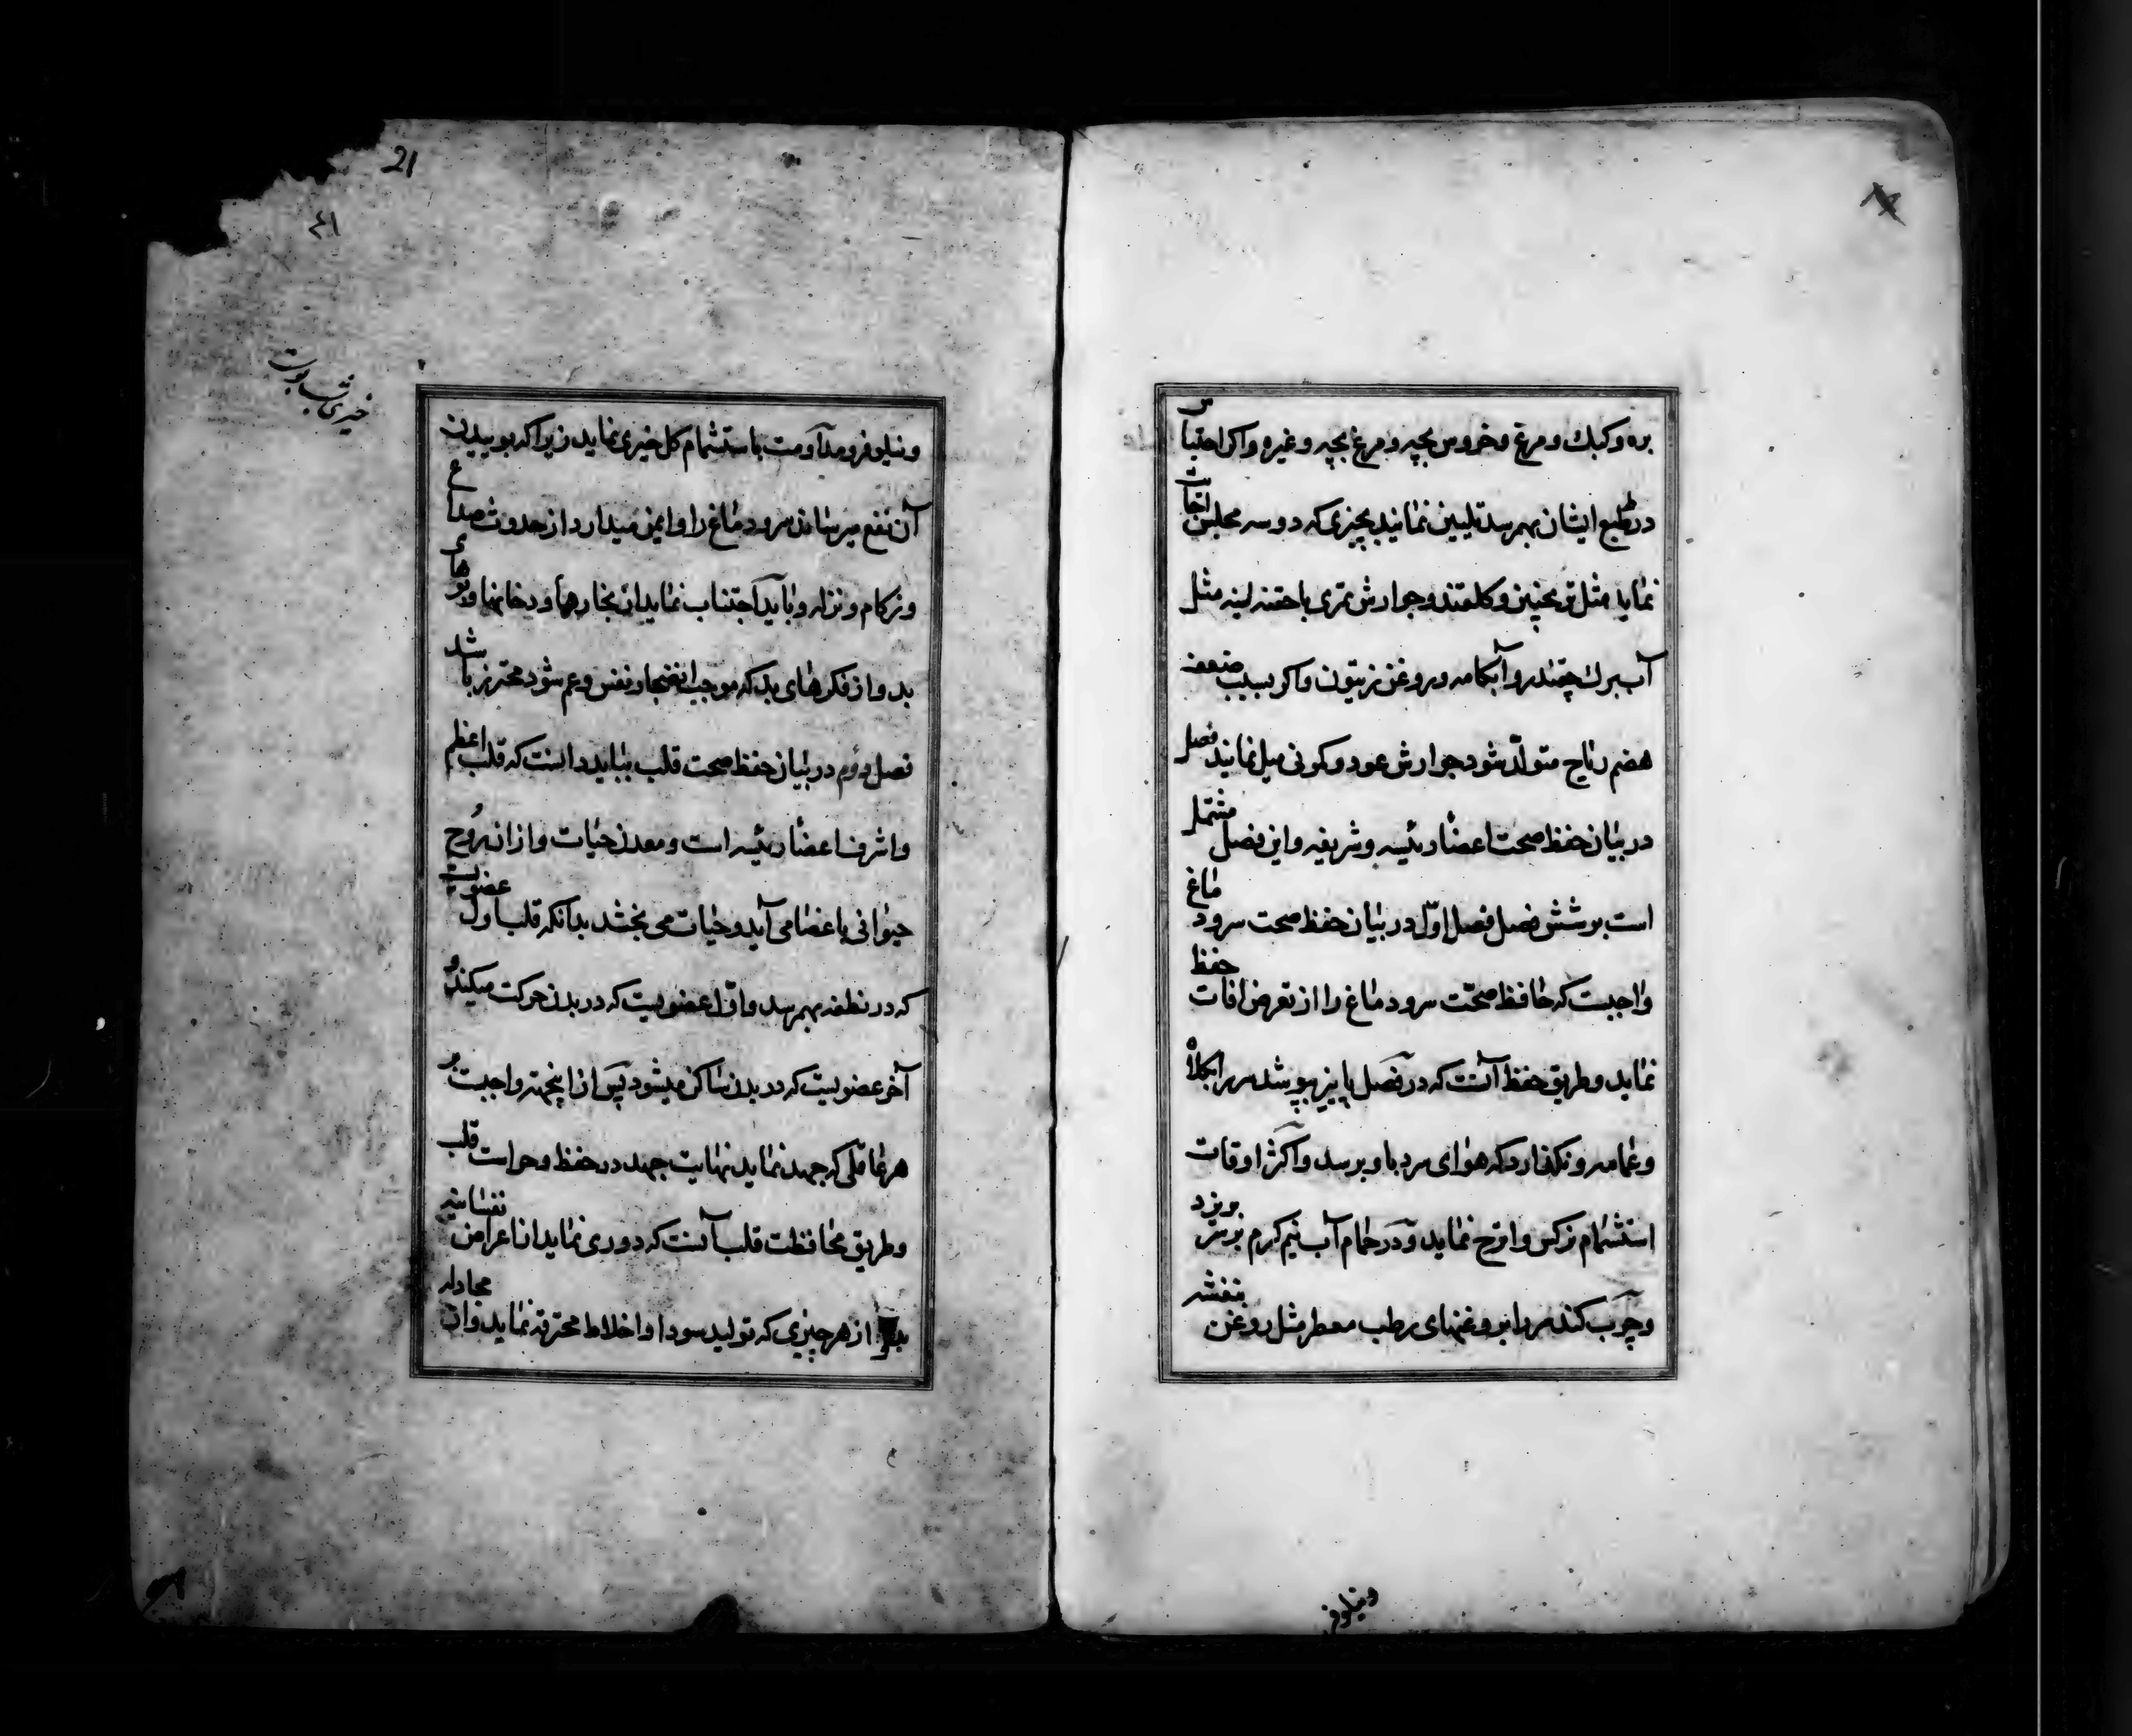 بره وکبک ومرغ وخروس بچه ومرغ بچه وغیره واکر احتباس
در طبع ایشان بهمرسد تلیین نمایند بچیزی که دو سه مجلس اجابت
نماید مثل ترنجبین وکلقند وجوارش تمری یا حقنه لینه مثل
آب برک چقندر وآبکامه وروغن زیتون واکر بسبب ضعف
هضم ریاح متولّد شود جوارش عود وکمونی میل نمایند فصل
در بیان حفظ صحت اعضاء رئیسه وشریفه واین فصل مشتمل
است بر شش فصل فصل اوّل در بیان حفظ صحت سر ودماغ
واجبست که حافظ صحّت سر ودماغ را از تعرض افات حفظ
نماید وطریق حفظ آنست که در فصل پاییز بپوشد سر را بکلاه
وعمامه ونکذارد که هوای سرد باو برسد واکثر اوقات
استشمام نرکس واترج نماید ودر حمام آب نیم کرم بر سر بریزد
وچرب کند سر را بروغنهای رطب معطر مثل روغن بنفشه
ونیلوفر
21
خیری شب بوست
ونیلوفر ومداومت باستشمام کل خیری نماید زیرا که بوییدن
آن نفع میرساند سر ودماغ را وایمن میدارد از حدوث صداع
وزکام ونزله وباید اجتناب نماید از بخارها ودخانها وبوهای
بد واز فکرهای بد که موجب انضجار نفس وغم شود محترز باشد
فصل دوّم در بیان حفظ صحت قلب بباید دانست که قلب اعظم
واشرف اعضاء رئیسه است ومعدن حیات واز ان روح
حیوانی باعضا می آید وحیات می بخشد بدانکه قلب اول عضویست
که در نطفه بهمرسد واوّل عضویست که در بدن حرکت میکند و
آخر عضویست که در بدن ساکن میشود پس از اینجهة واجبست بر
هر عاقلی که جهد نماید نهایت جهد در حفظ وحراست قلب
وطریق محافظت قلب آنست که دوری نماید از اعراض نفسانیه
بد و از هر چیزی که تولید سودا واخلاط محترقه نماید واز مجادله